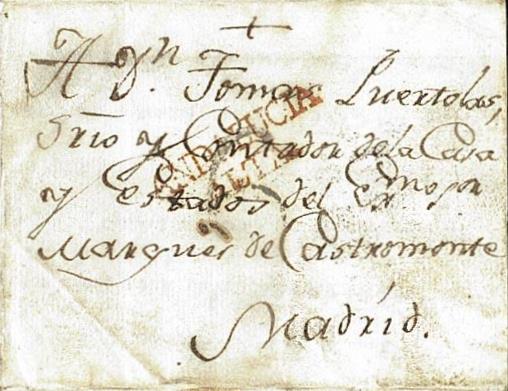 +
A Dn. Tomas Luertolas,
Srio y Contador de la Casa
y Estados del Exmo sor
Marques de Castromonte
Madrid.
ANDALUCIA
ALTA